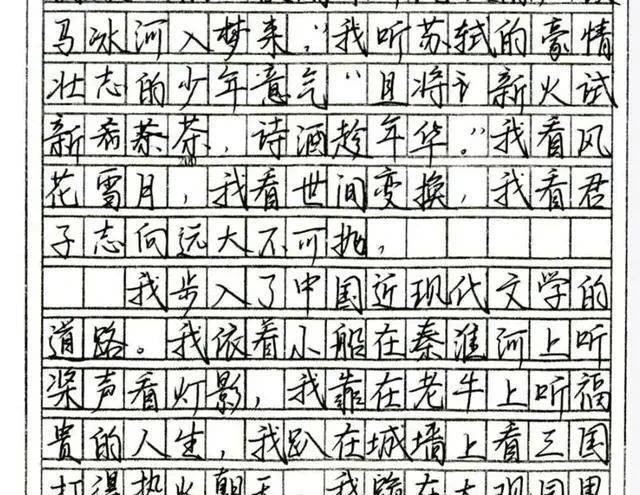 马冰河入梦来，"我听苏轼的豪情
壮志的少年意气"且将新火试
新茶，诗酒趁年华。"我看风
200
花雪月，我看世间变换，我看君
子志向远大不可抛，
我步入了中国近现代文学的
道路。我依着小船在秦淮河上听
桨声看灯影，我靠在老牛上听福
贵的人生，我趴在城墙上看三国
打得热火朝天，我